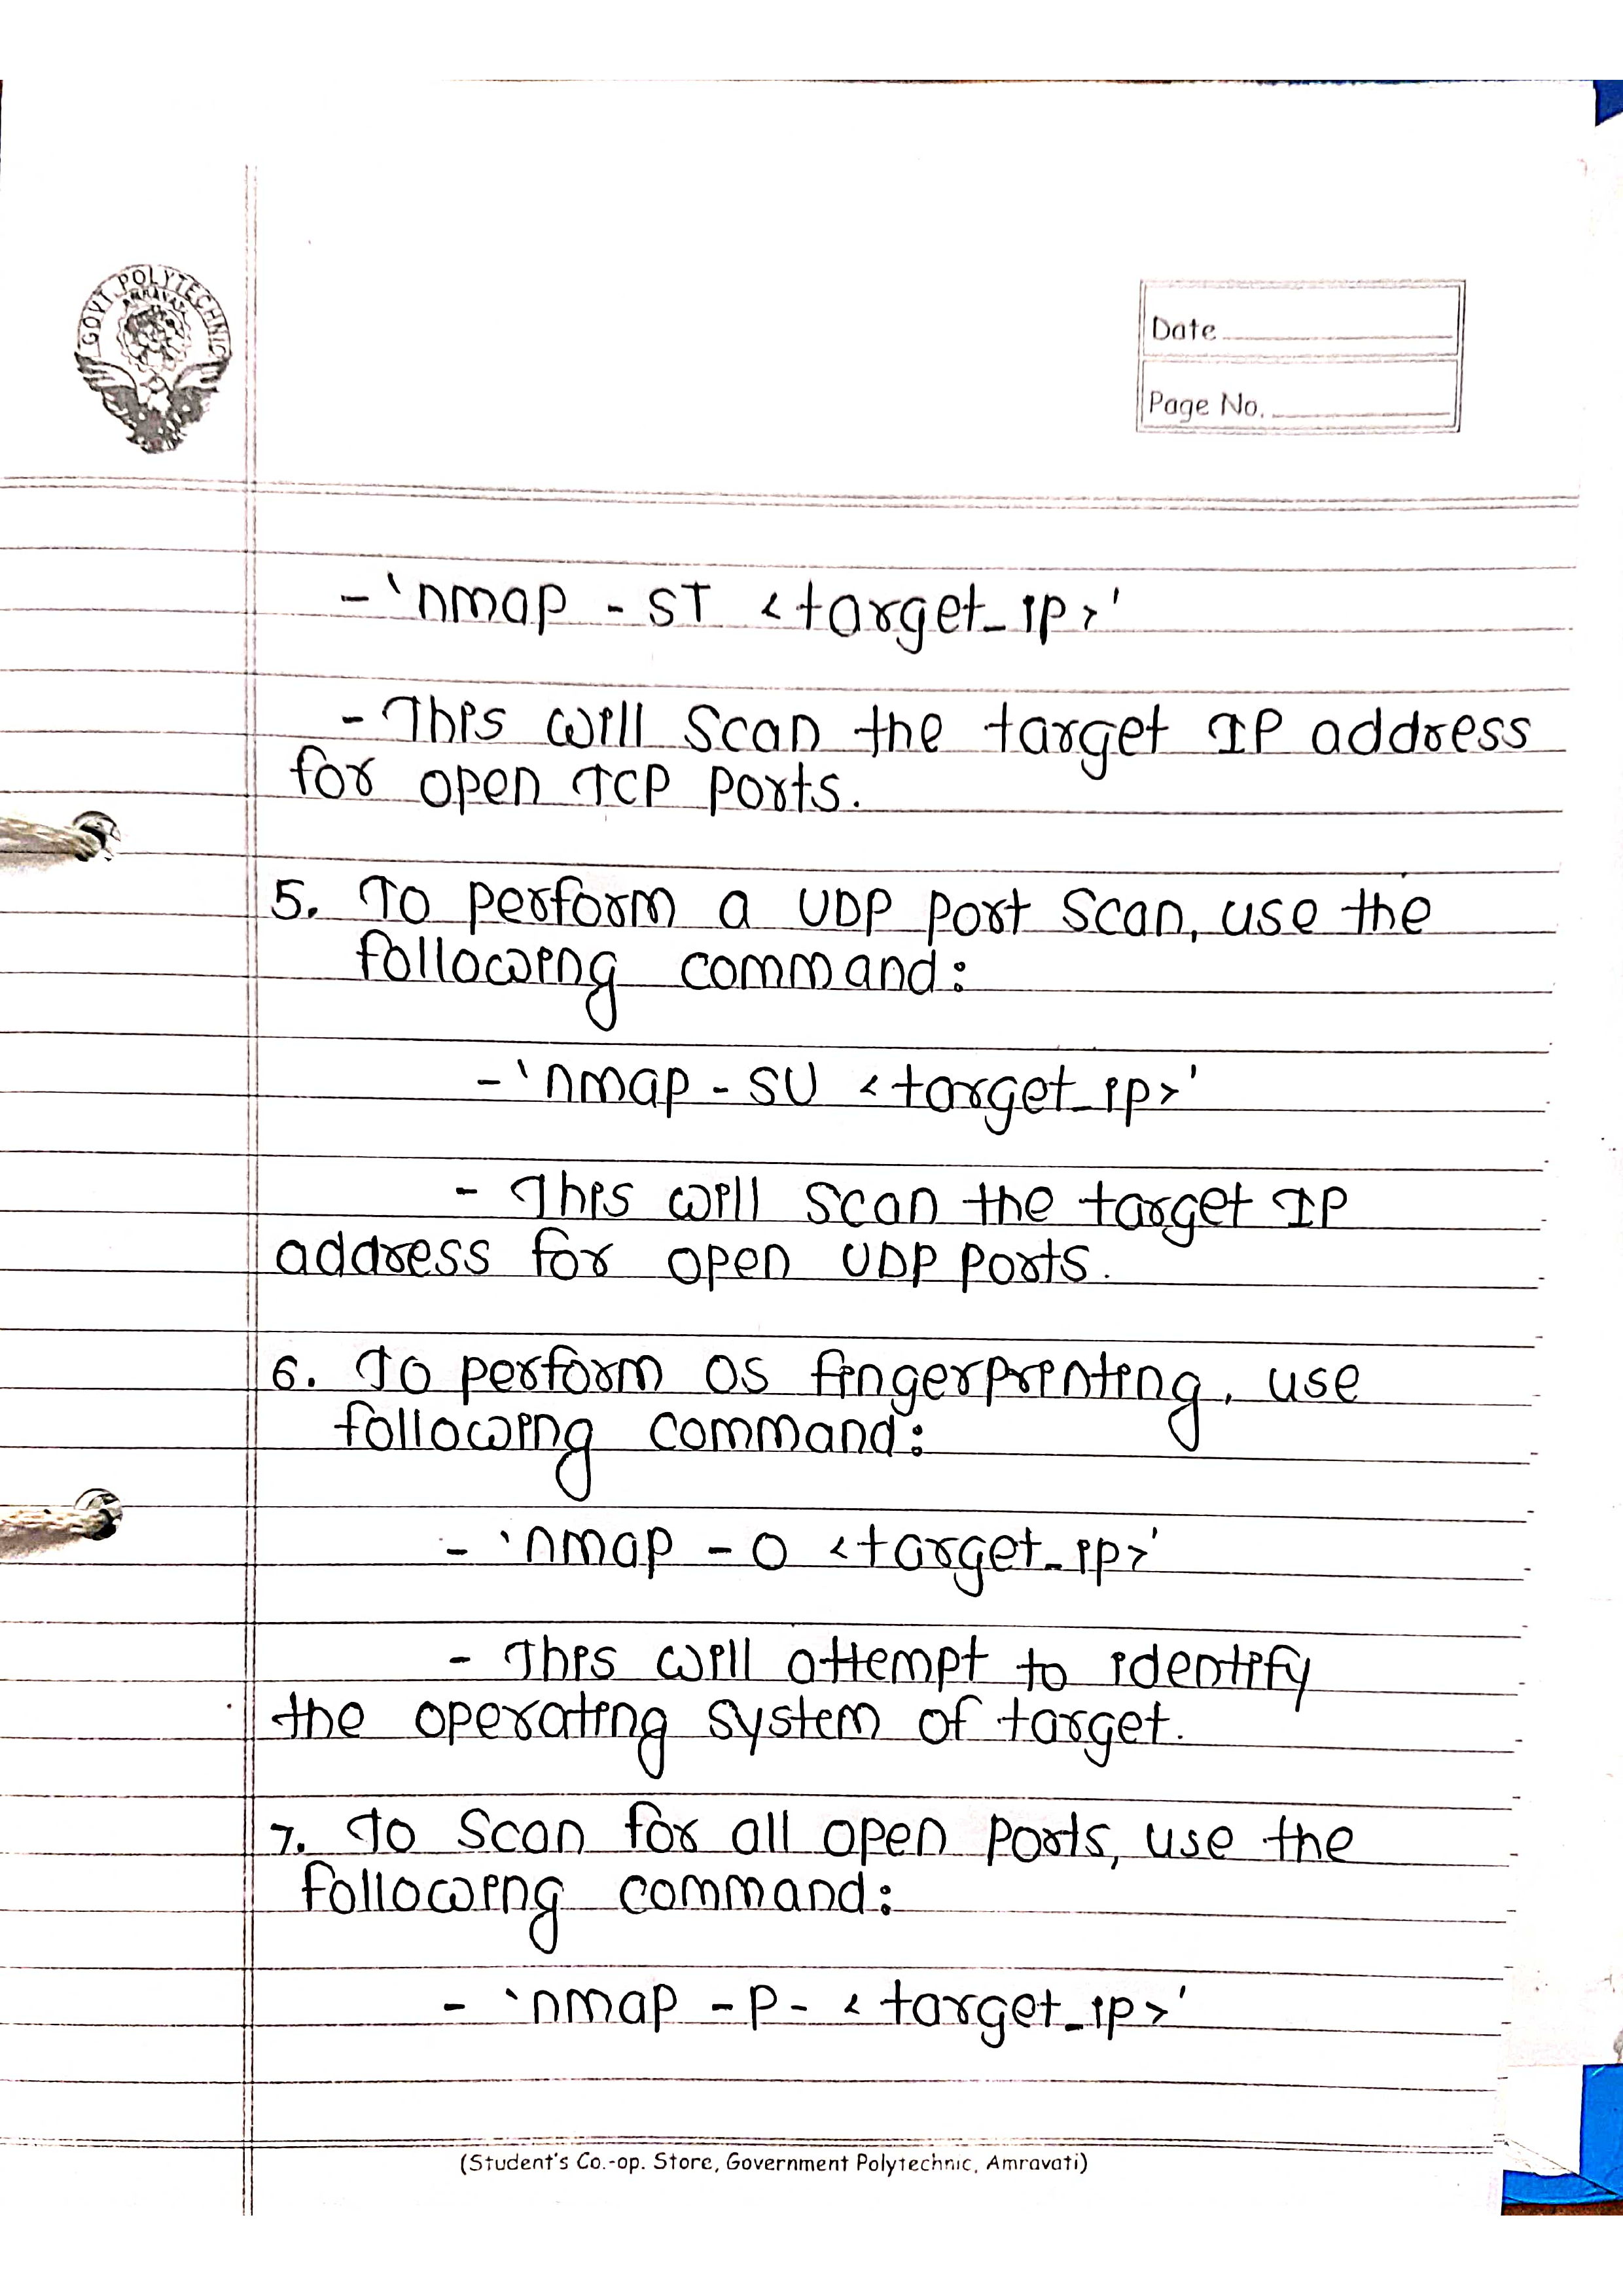 GOVT POLYTECHNIC
AMRAVATI
Date
Page No.
- 'nmap - sT <target_ip>'
- This will scan the target IP address
for open TCP ports.
5. To perform a UDP port scan, use the
following command:
- 'nmap - sU <target_ip>'
- This will scan the target IP
address for open UDP ports.
6. To perform OS fingerprinting, use
following command:
- 'nmap - O <target_ip>'
- This will attempt to identify
the operating system of target.
7. To scan for all open ports, use the
following command:
- 'nmap - p - <target_ip>'
(Student's Co.-op. Store, Government Polytechnic, Amravati)